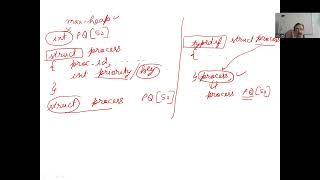 max-heap
int PQ[50]
struct process
{ proc-id,
int priority/key
};
struct process PQ[50]
typedef struct process
{
} process
process PQ[50]